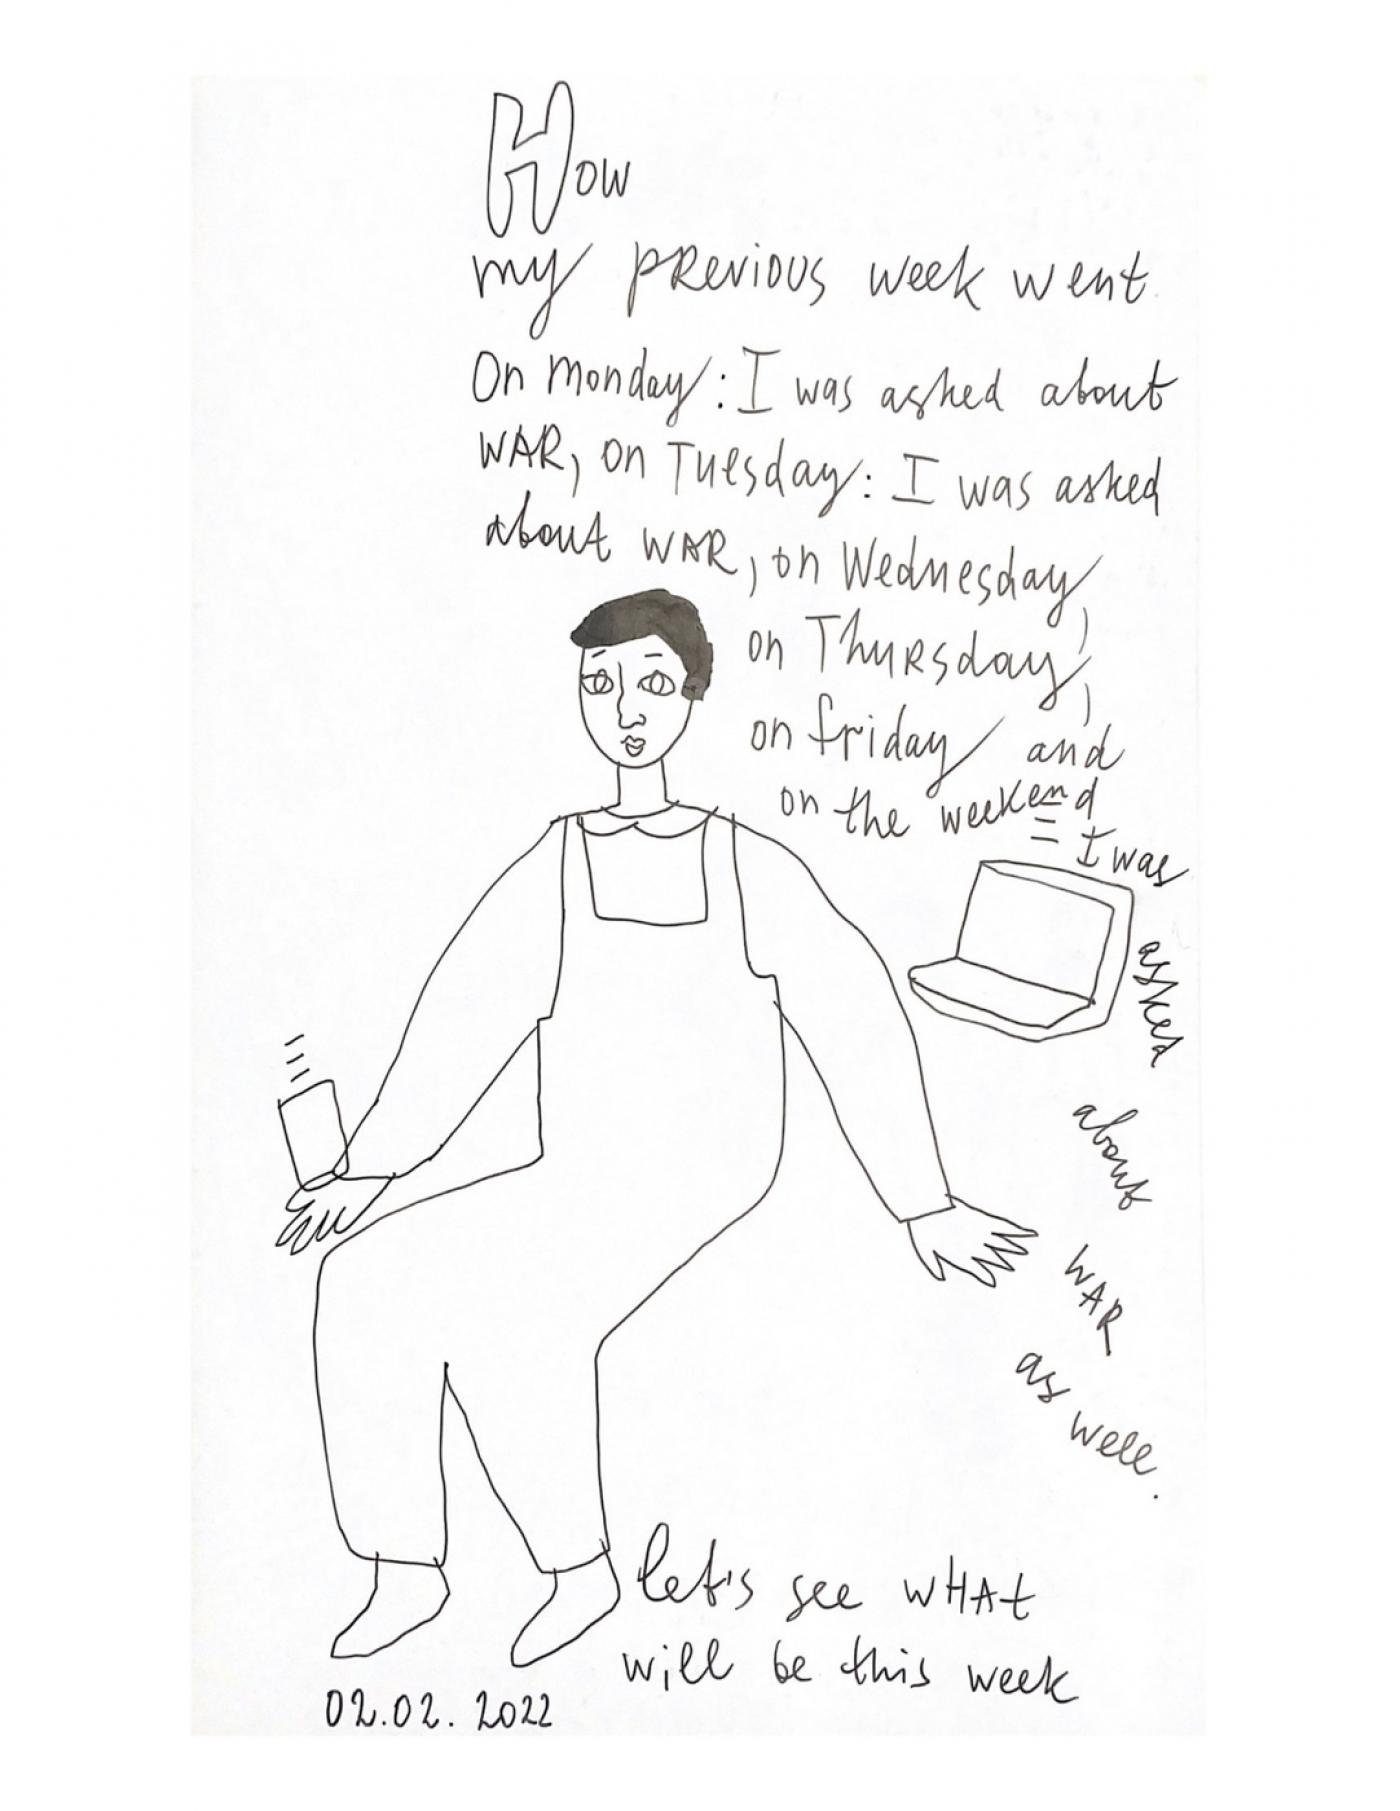 How
my previous week went.
On monday: I was asked about
WAR, on Tuesday: I was asked
about WAR, on Wednesday,
on Thursday,
on friday and
on the weekend
I was
asked
about
WAR
as well.
let's see wHAt
will be this week
02.02.2022